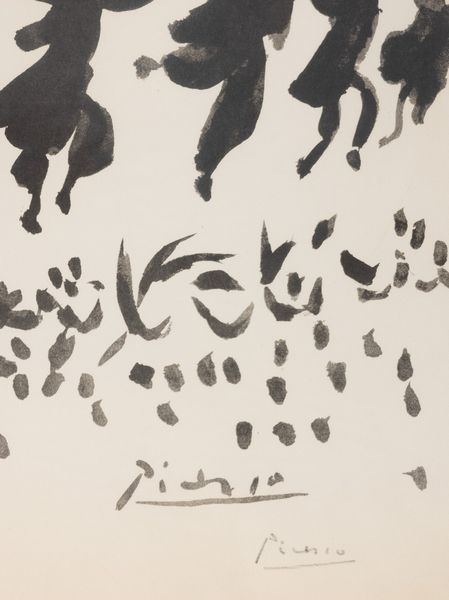 Picasso
Picasso